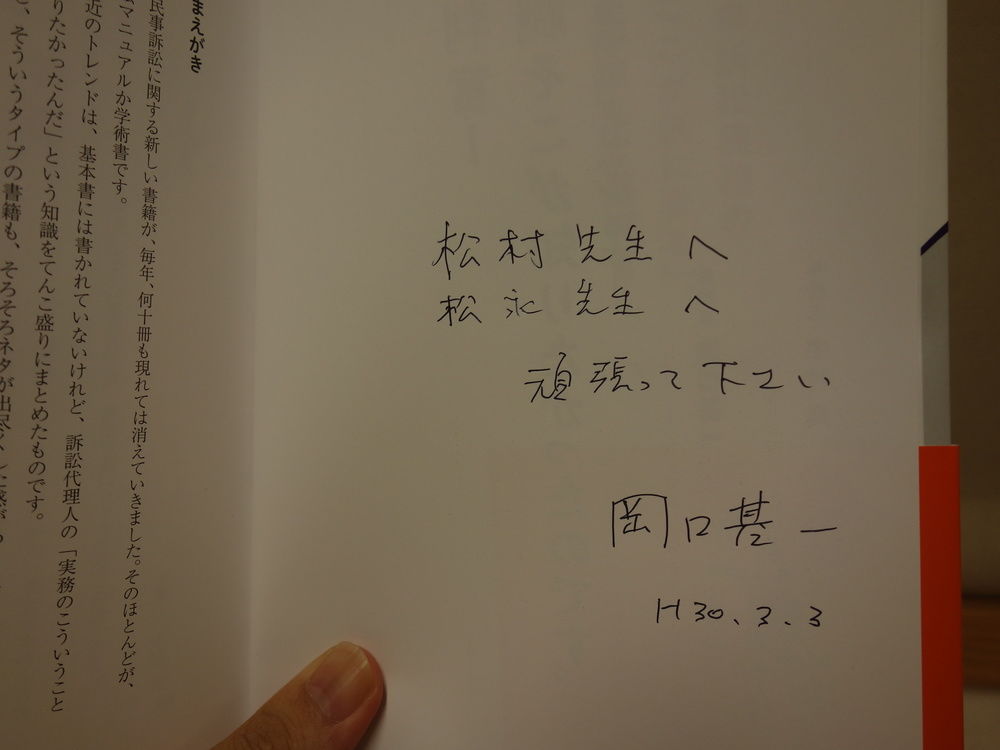 まえがき
民事訴訟に関する新しい書籍が、毎年、何十冊も現れては消えていきました。そのほとんどが、
マニュアルか学術書です。
近のトレンドは、基本書には書かれていないけれど、訴訟代理人の「実務のこういうこと
りたかったんだ」という知識をてんこ盛りにまとめたものです。
そういうタイプの書籍も、そろそろネタが出尽くした感が
松村先生へ
松永先生へ
頑張って下さい
岡口基一
H30.3.3